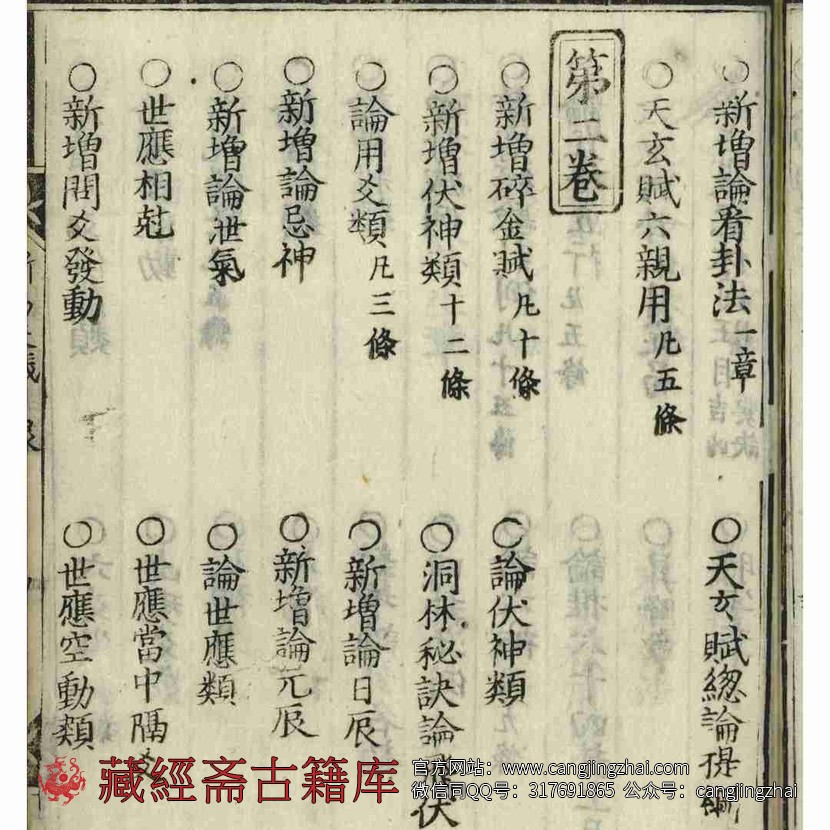 ○新增論看卦法一章
○天玄賦總論提綱
○天玄賦六親用凡五條
第二卷
○新增碎金賦凡十條
○論伏神類
○新增伏神類十二條
○洞林秘訣論飛伏
○論用爻類凡三條
○新增論日辰
○新增論忌神
○新增論元辰
○新增論泄氣
○論世應類
○世應相尅
○世應當中隔爻
○新增間爻發動
○世應空動類
藏經斋古籍库
官方网站：www.cangjingzhai.com
微信同QQ号：317691865 公众号：cangjingzhai